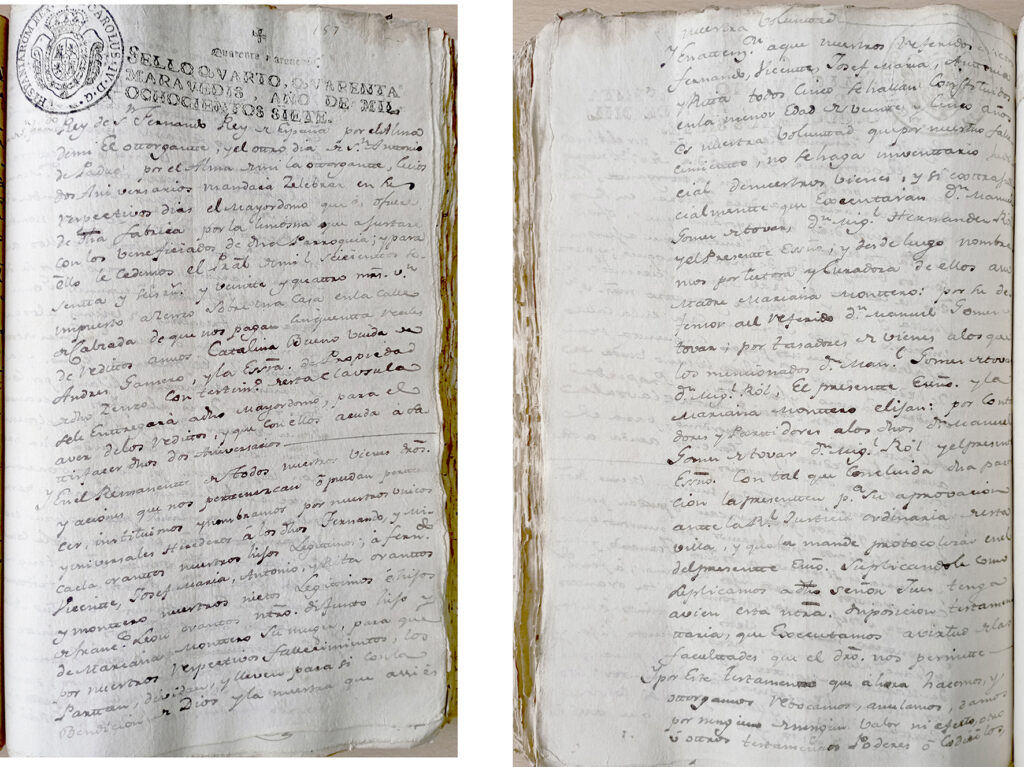 HISPANIARUM REX CAROLUS IV D G
157
Quarenta maravedis
SELLO QVARTO, QVARENTA
MARAVEDIS, AÑO DE MIL
OCHOCIENTOS SIETE.
Rey de S. Fernando Rey de España por el Alma
de mi El ottorgante; y el otro dia de Sn. Antonio
de Padua por el Alma de mi la ottorgante, cuios
dos Aniversarios mandará Zelebrar en los
respectivos dias el Mayordomo que es, o fuere
de dha fabrica por la limosna que ajustare
con los beneficiados de dha Parroquia; y para
ello le Cedimos el Pral. de mil seiscientos se
senta y seis rs. y veinte y quattro mrs. vn
impuesto a Zenzo Sobre una Casa en la Calle
de Labrada de que nos pagan cinquentta reales
de redittos anuos Catalina Bueno viuda de
Andres Gamero, y la Essra. de Propiedad
a dho Zenzo Con testim.º de esta Clausula
se le Enttregará a dho Mayordomo, para el
aver de los redittos, y que con ellos acuda a sa
tisfacer dhos dos Aniversarios
Y en el Remanente de todos nuestros vienes dros.
y acciones que nos pertenezcan ó puedan pertene
cer, instituimos y nombramos por nuestros unicos
y universales Herederos a los dhos Fernando, y Mi
caela ovanttos nuestros hijos Legittimos; a Fern.do
Vicente, Josef Maria, Antonio, y Rita ovanttos
y monttero nuestros nietos Legitimos é hijos
de Franc.º Leon ovanttos ntro. difunto hijo y
de Mariana Monttero Su muger, para que
por nuestros respectivos fallecimientos, los
Parttan, dividan, y lleven para si con la
Bendicion de Dios y la nuestra que assi es
nuestra Voluntad
Y en attem.n a que nuestros referidos nietos
Fernando, Vicente, Josef Maria, Antonio
y Rita todos Cinco se hallan Constituidos
en la menor Edad de veinte y Cinco años
es nuestra Voluntad que por nuestro falle
cimiento, no se haga inventtario judi
cial de nuestros vienes, y si exttraju
cialmentte que Executarán Dn. Manuel
Gomez de tovar, Dn. Mig.l Hernandez Ról
y el Presente Essno; y desde luego nombra
mos por tutora y Curadora de ellos a su
Madre Mariana Monttero: por su de
fensor al referido Dn. Manuel Gomez de
tovar; por tasadores de vienes a los que
los mencionados Dn. Man.l Gomez de tovar
Dn. Mig.l Ról, El presentte Essno. y la
Mariana Monttero elijan: por Conta
dores y Partidores a los dhos Dn. Manuel
Gomez de tovar Dn. Mig.l Ról y el presente
Essno. Con tal que Concluida dha parti
cion la presentten p.a Su aprovacion
antte la Rl. Justicia ordinaria de esta
villa, y que la mande protocolizar en el
del presentte Essno. Suplicandole como
Suplicamos a dho Señor Juez tenga
a vien esta ntra. disposicion testamen
ttaria, que Executtamos a virtud de las
facultades que el dro. nos permitte
Y por Este testamento que ahora hacemos, y
ottorgamos revocamos, anulamos, y damos
por ninguno y de ningun valor ni efecto, otro
ú ottros testamentos Poderes ó Codicilos,